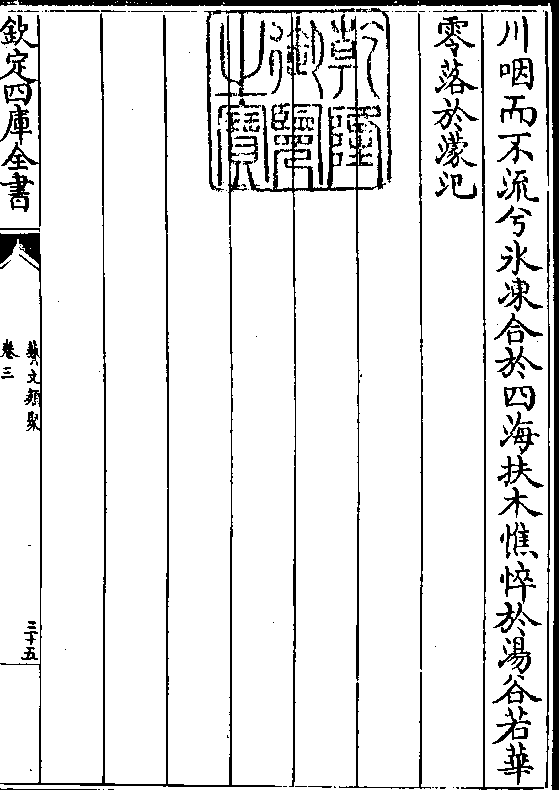 川咽而不流兮氷凍合於四海扶木憔悴於湯谷若華
零落於濛汜
乾隆御覽之寶
欽定四庫全書
藝文類聚
卷三
三十五